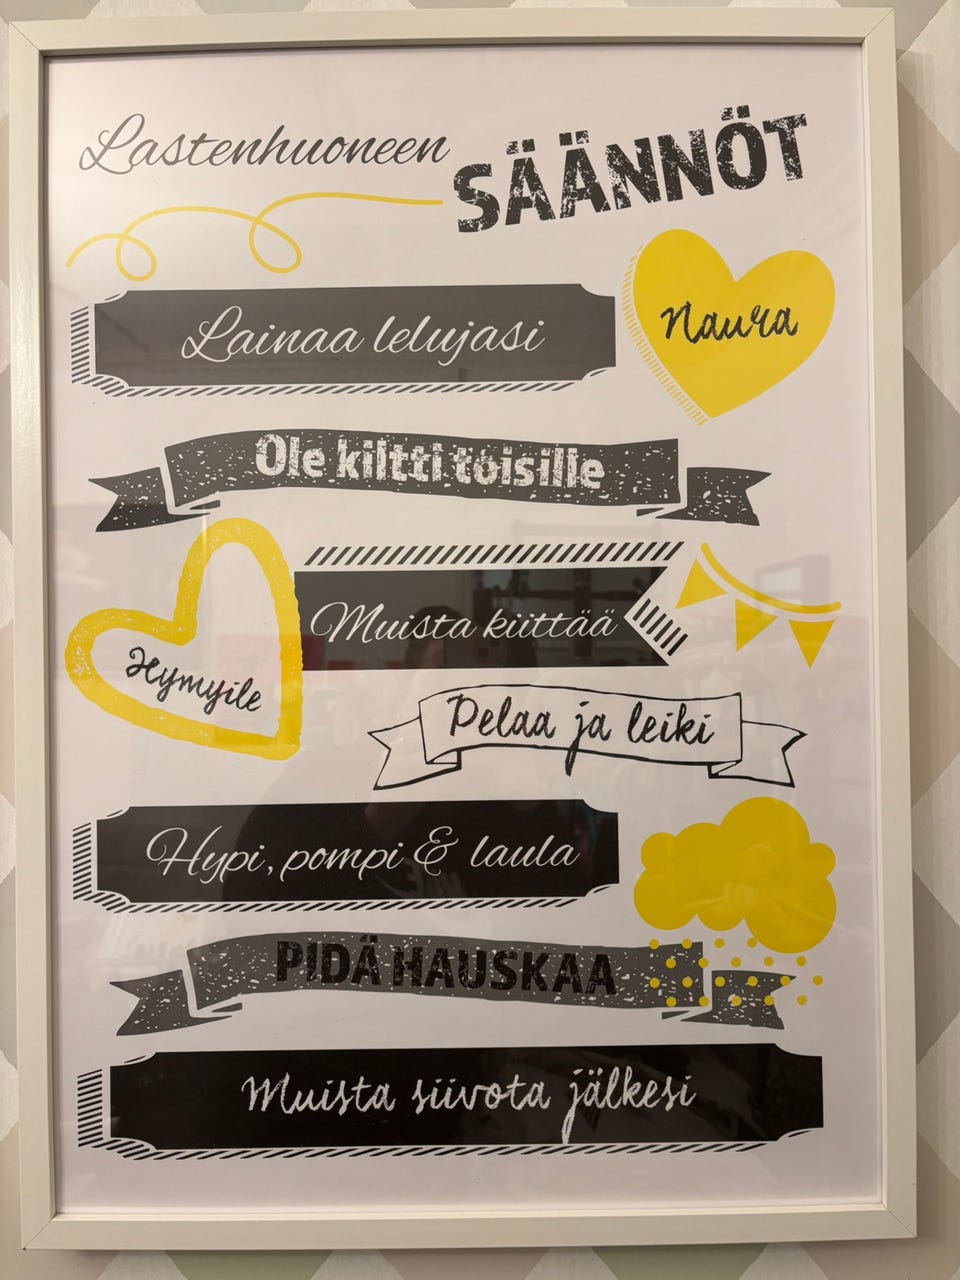 Lastenhuoneen SÄÄNNÖT
Lainaa lelujasi
Naura
Ole kiltti toisille
Muista kiittää
Hymyile
Pelaa ja leiki
Hypi, pompi & laula
PIDÄ HAUSKAA
Muista siivota jälkesi